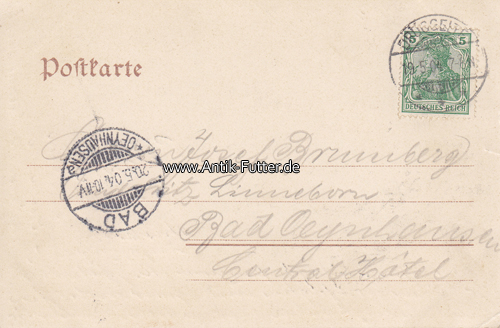 Postkarte
5 5
DEUTSCHES REICH
BAD OEYNHAUSEN
20.5.04. 10-11V
www.Antik-Futter.de
Josef Brumberg
Linneborn
Bad Oeynhausen
Central Hôtel